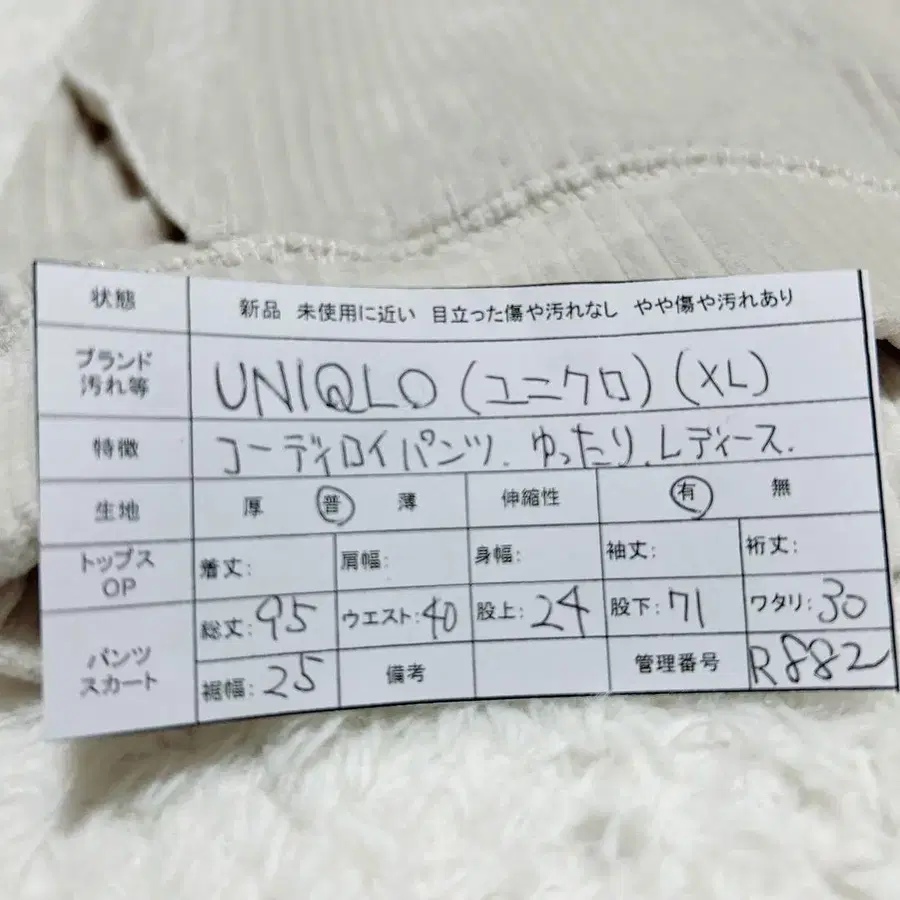 状態 新品 未使用に近い 目立った傷や汚れなし やや傷や汚れあり
ブランド
汚れ等 UNIQLO (ユニクロ) (XL)
特徴 コーディロイパンツ. ゆったり. レディース.
生地 厚 普 薄 伸縮性 有 無
トップス
OP 着丈: 肩幅: 身幅: 袖丈: 裄丈:
総丈: 95 ウエスト: 40 股上: 24 股下: 71 ワタリ: 30
パンツ
スカート 裾幅: 25 備考 管理番号 R882